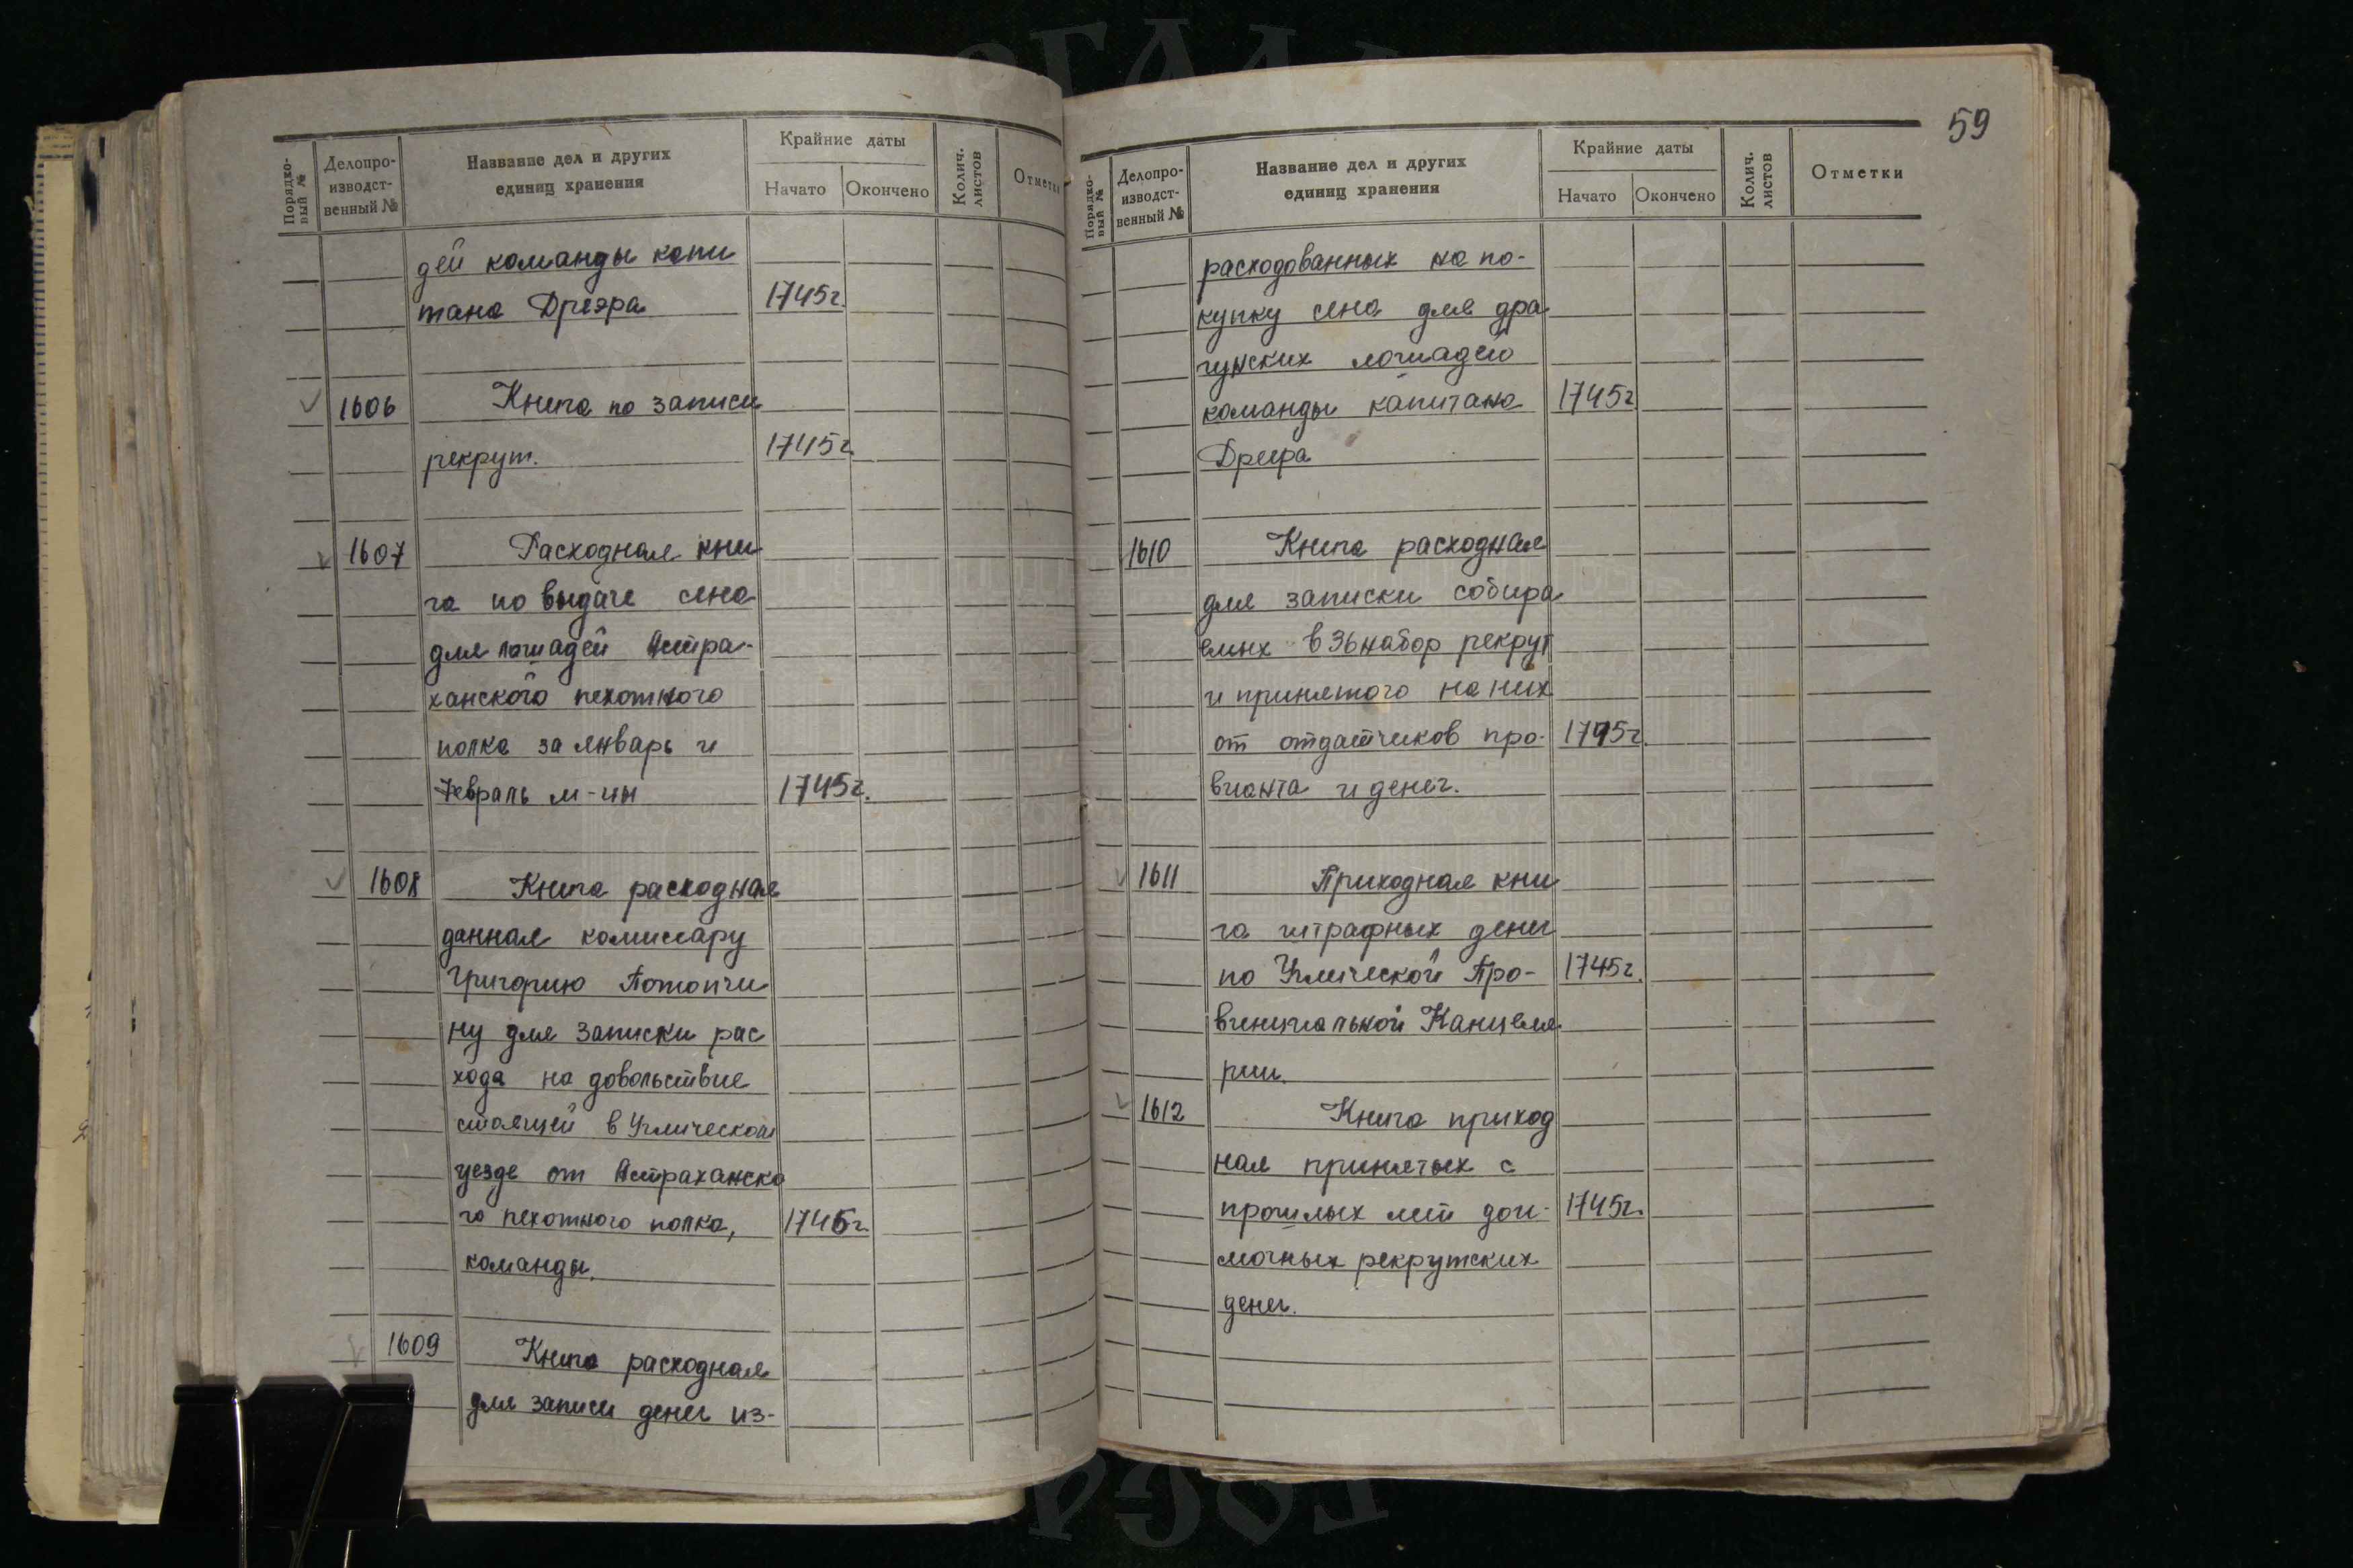 59
Порядко-
вый №
Делопро-
изводст-
венный №
Название дел и других
единиц хранения
Крайние даты
Начато
Окончено
Колич.
листов
Отметки
дей команды капи
тана Дреэра 1745г.
1606 Книга по записи
рекрут. 1745г.
1607 Расходная кни
га по выдаче сена
для лошадей Астра-
ханского пехотного
полка за январь и
февраль м-цы 1745г.
1608 Книга расходная
данная комиссару
Григорию Потопчи
ну для записки рас
хода на довольствие
стоящей в Угличском
уезде от Астраханско
го пехотного полка, 1745г.
команды.
1609 Книга расходная
для записи денег из-
Порядко-
вый №
Делопро-
изводст-
венный №
Название дел и других
единиц хранения
Крайние даты
Начато
Окончено
Колич.
листов
Отметки
расходованных на по-
купку сена для дра
гунских лошадей
команды капитана 1745г
Дреера
1610 Книга расходная
для записки собира
емых в 36 набор рекрут
и принятого на них
от отдатчиков про- 1745г.
вианта и денег.
1611 Приходная кни
га штрафных денег
по Угличской Про- 1745г.
винциальной Канцеля
рии.
1612 Книга приход
ная принятых с
прошлых лет дои- 1745г.
мочных рекрутских
денег.